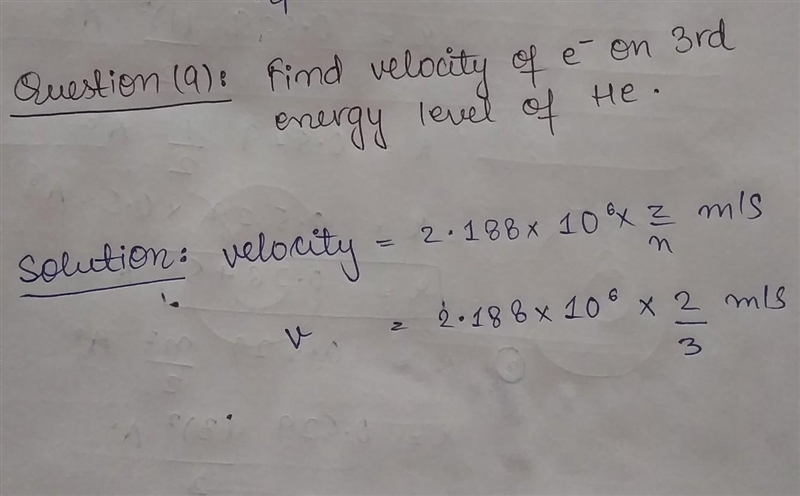 Question (9): Find velocity of e⁻ on 3rd
energy level of He.
Solution: velocity = 2.188 × 10⁶ × z/n m/s
v = 2.188 × 10⁶ × 2/3 m/s